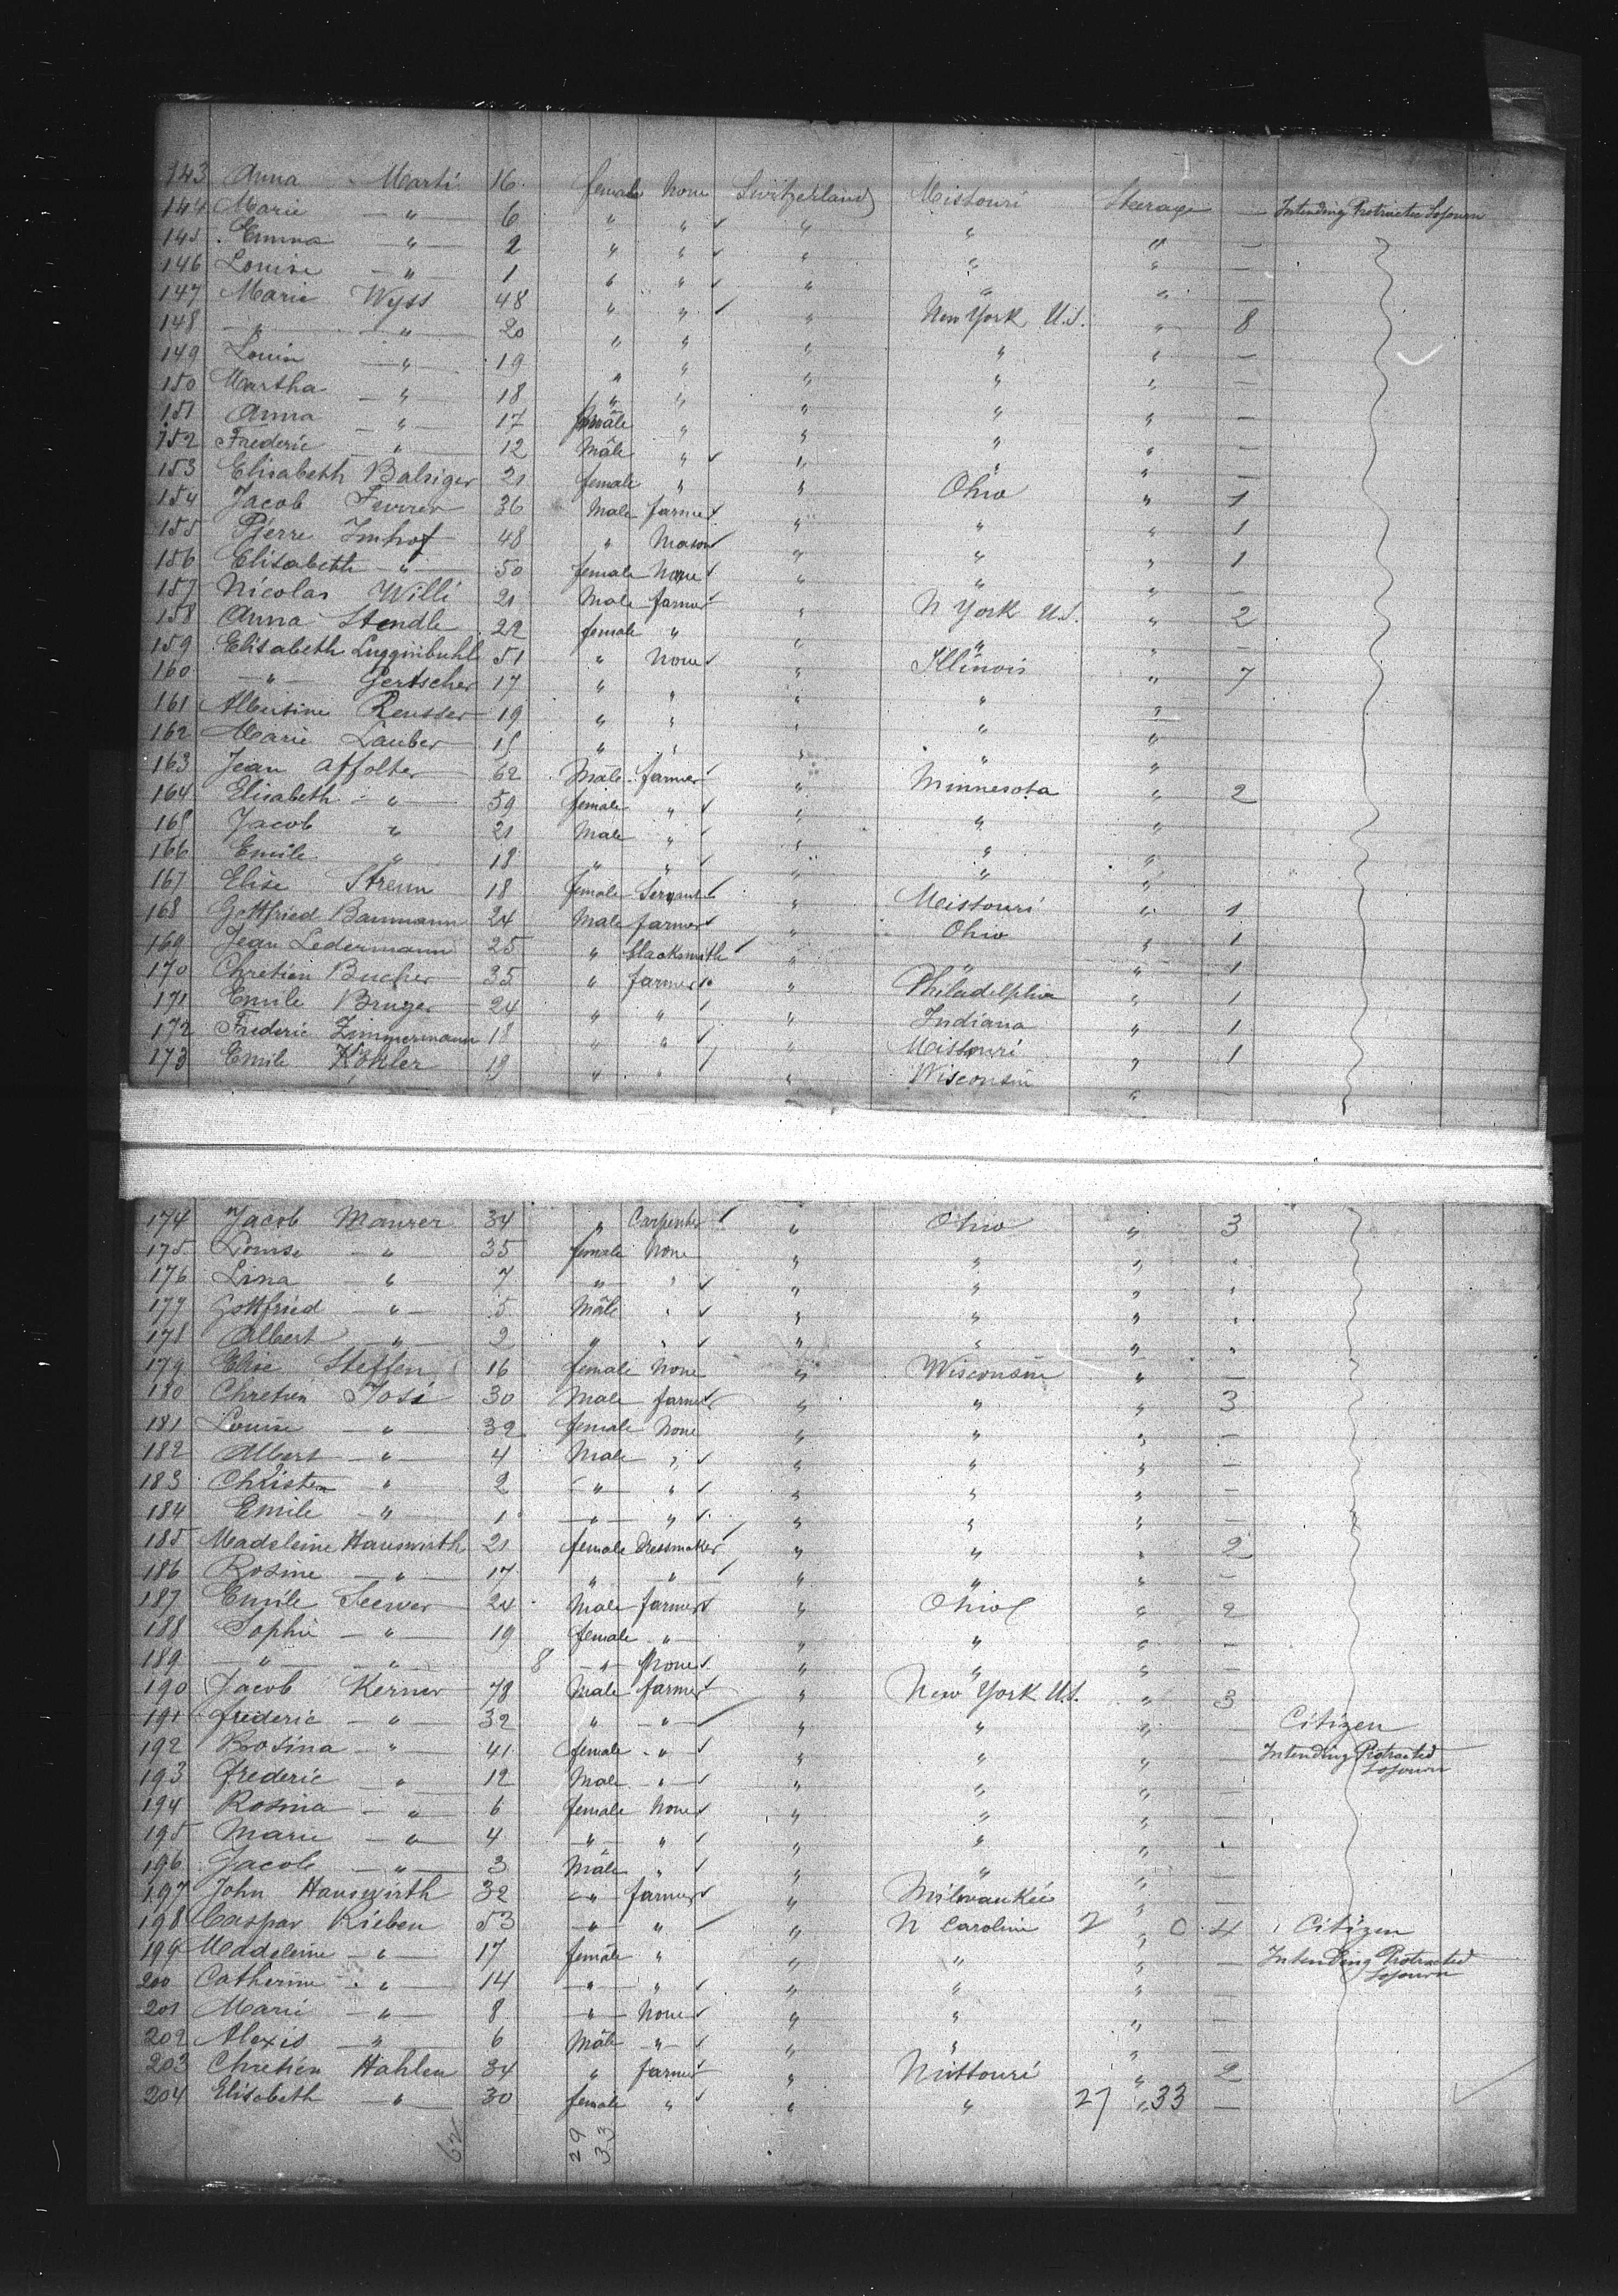 143 Anna Marti 16 female None Switzerland Missouri Steerage — Intending Protracted Sojourn
144 Marie — " — 6 " " " " " —
145 Emma — " — 2 " " " " " —
146 Louise — " — 1 " " " " " —
147 Marie Wyss 48 " " " New York U.S. " 8
148 — " — " — 20 " " " " " —
149 Louise — " — 19 " " " " " —
150 Martha — " — 18 " " " " " —
151 Anna — " — 17 female " " " " —
152 Frederic — " — 12 Male " " " " —
153 Elisabeth Balsiger 21 female " " Ohio " 1
154 Jacob Furrer 36 Male farmer " " " 1
155 Pierre Imhof 48 " Mason " " " 1
156 Elisabeth — " — 50 female None " " " —
157 Nicolas Willi 21 Male farmer " N York U.S. " 2
158 Anna Stendle 22 female " " " " —
159 Elisabeth Lugginbuhl 51 " None " Illinois " 7
160 — " — Gertscher 17 " " " " "
161 Albertine Reusser 19 " " " " "
162 Marie Lauber 15 " " " " "
163 Jean Affolter 62 Male farmer " Minnesota " 2
164 Elisabeth — " — 59 female " " " "
165 Jacob " 21 Male " " " "
166 Emile " 18 " " " " "
167 Elise Streun 18 female Servant " Missouri " 1
168 Gottfried Baumann 24 Male farmer " Ohio " 1
169 Jean Ledermann 25 " blacksmith " " " 1
170 Chretien Bucher 35 " farmer " Philadelphia " 1
171 Emile Bruger 24 " " " Indiana " 1
172 Frederic Zimmermann 18 " " " Missouri " 1
173 Emile Köhler 19 " " " Wisconsin " —
174 Jacob Maurer 34 " Carpenter " Ohio " 3
175 Louise — " — 35 female None " " "
176 Lina — " — 7 — " — " " " "
177 Gottfried — " — 5 Male " " " "
178 Albert — " — 2 " " " " "
179 Elise Steffen 16 female None " Wisconsin " —
180 Chretien Josi 30 Male farmer " " " 3
181 Louise — " — 32 female None " " " —
182 Albert — " — 4 Male " " " " —
183 Christen " 2 — " — " " " " —
184 Emile — " — 1 — " — " " " " —
185 Madeleine Hauswirth 21 female Dressmaker " " " 2
186 Rosine — " — 17 " " " " " —
187 Emile Seewer 24 Male farmer " Ohio " 2
188 Sophie — " — 19 female " " " " —
189 — " — — " — 8 — " — None " " " —
190 Jacob Kerner 78 Male farmer " New York U.S. " 3
191 frederic — " — 32 " — " — " " " — Citizen
192 Rosina — " — 41 female " " " " — Intending Protracted Sojourn
193 frederic — " — 12 Male — " — " " " —
194 Rosina — " — 6 female None " " " —
195 Marie — " — 4 — " — " " " " —
196 Jacob — " — 3 Male " " " " —
197 John Hauswirth 32 — " — farmer " Milwaukie " —
198 Caspar Rieben 53 — " — " " N Caroline 2 " 0 4 Citizen
199 Madeleine — " — 17 female " " " " — Intending Protracted Sojourn
200 Catherine — " — 14 — " — " " " " —
201 Marie — " — 8 — " — None " " " —
202 Alexis — " — 6 Male — " — " " " —
203 Chretien Hahlen 34 " farmer " Missouri " 2
204 Elisabeth — " — 30 female " " " 27 " 33 —
62
29
33